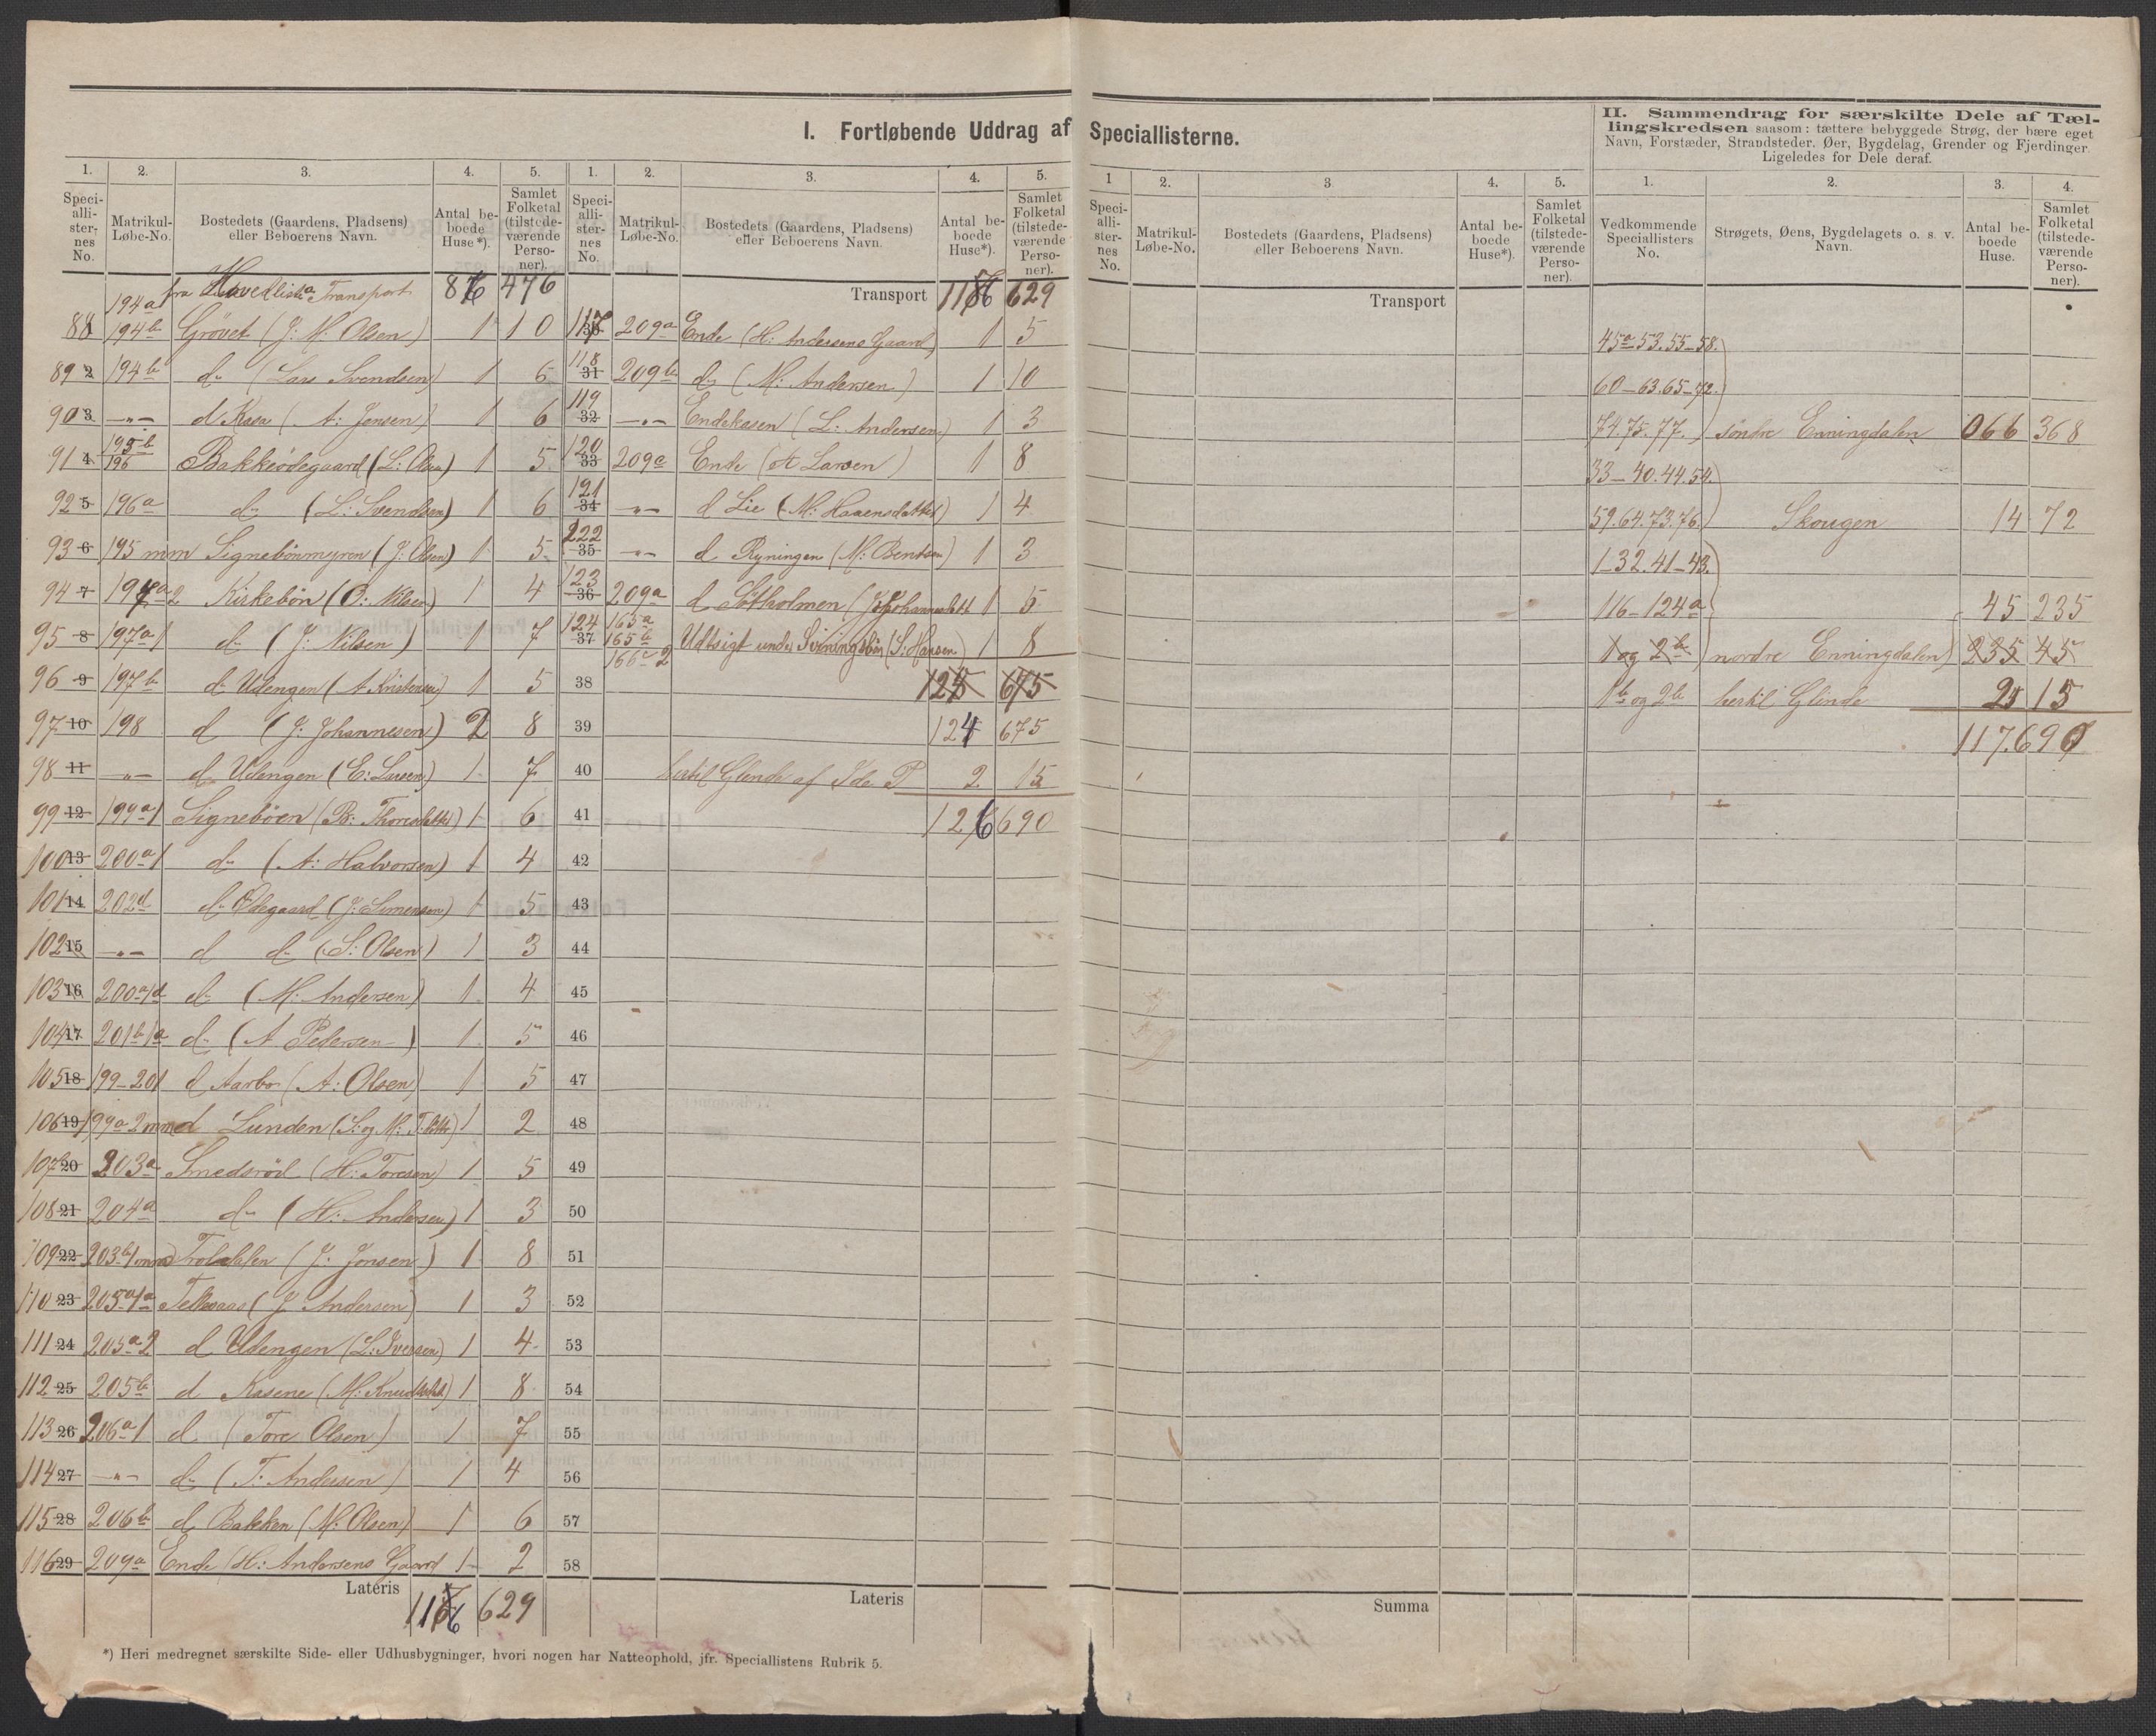 I. Fortløbende Uddrag af Speciallisterne.
1. 2. 3. 4. 5.
Speci-alli-ster-nes No. Matrikul-Løbe-No. Bostedets (Gaardens, Pladsens) eller Beboerens Navn. Antal be-boede Huse*). Samlet Folketal (tilstede-værende Perso-ner).
fra Hovedlista Transport 86 476
88 194a 194b Grövet (J: M: Olsen) 1 10
89 2 194b do (Lars Svendsen) 1 6
90 3 —„— d Kasa (A: Jensen) 1 6
91 4 195b 196 Bakkeödegaard (L: Olsen) 1 5
92 5 196a do (L: Svendsen) 1 6
93 6 195 mm Signebönmyren (J: Olsen) 1 5
94 7 197a2 Kirkebön (O: Nilsen) 1 4
95 8 197a1 do (J: Nilsen) 1 7
96 9 197b do Udengen (A Kristensen) 1 5
97 10 198 d (J: Johannesen) 2 8
98 11 —„— d Udengen (E: Larsen) 1 7
99 12 199a1 Signeböen (B: Thoresdatter) 1 6
100 13 200a1 do (A: Halvorsen) 1 4
101 14 202d do Ödegaard (J: Simensen) 1 5
102 15 —„— d do (S: Olsen) 1 3
103 16 200a1d do (M: Andersen) 1 4
104 17 201b1a do (A Pedersen) 1 5
105 18 199-201 d Aarbo (A: Olsen) 1 5
106 19 199a2 mm d Lunden (S: og M: T: döttr) 1 2
107 20 203a Smedsröd (H: Toresen) 1 5
108 21 204a do (H: Andersen) 1 3
109 22 203b1 mm Troldalen (J: Jonsen) 1 8
110 23 205a1a (J Andersen) 1 3
111 24 205a2 d Udengen (L: Iversen) 1 4
112 25 205b d Kasene (M: Knudsdatt) 1 8
113 26 206a1 d (Tore Olsen) 1 7
114 27 —„— do (T: Andersen) 1 4
115 28 206b d Bakken (M: Olsen) 1 6
116 29 209a Ende (H: Andersens Gaard 1 2
Lateris 116 629
*) Heri medregnet særskilte Side- eller Udhusbygninger, hvori nogen har Natteophold, jfr. Speciallistens Rubrik 5.
1. 2. 3. 4. 5.
Speci-alli-ster-nes No. Matrikul-Løbe-No. Bostedets (Gaardens, Pladsens) eller Beboerens Navn. Antal be-boede Huse*). Samlet Folketal (tilstede-værende Perso-ner).
Transport 116 629
117 30 209a Ende (H: Andersens Gaard) 1 5
118 31 209b do (M: Andersen) 1 10
119 32 —„— Endekasen (L: Andersen) 1 3
120 33 209c Ende (A Larsen) 1 8
121 34 —„— d Lie (M: Hansensdatter) 1 4
122 35 —„— d Ryningen (M: Bentsen) 1 3
123 36 209a d Sötholmen 1 5
124 37 165a 165b 166c2 Udtsigt under (S: Hansen) 1 8
38 125 675
39 124 675
40 hertil Glende af Ide P 2 15
41 126 690
42
43
44
45
46
47
48
49
50
51
52
53
54
55
56
57
58
Lateris
1 2. 3 4. 5.
Speci-alli-ster-nes No. Matrikul-Løbe-No. Bostedets (Gaardens, Pladsens) eller Beboerens Navn. Antal be-boede Huse*). Samlet Folketal (tilstede-værende Perso-ner).
Transport
Summa
II. Sammendrag for særskilte Dele af Tæl-
lingskredsen saasom: tættere bebyggede Strøg, der bære eget
Navn, Forstæder, Strandsteder, Øer, Bygdelag, Grender og Fjerdinger.
Ligeledes for Dele deraf.
1. 2. 3. 4.
Vedkommende Speciallisters No. Strøgets, Øens, Bygdelagets o. s. v. Navn. Antal be-boede Huse. Samlet Folketal (tilstede-værende Perso-ner).
45a-53.55-58.
60-63.65-72.
74.75.77. söndre Enningdalen 066 368
33-40.44.54.
59.64.73.76. Skougen 14 72
1-32.41-43.
116-124a 45 235
1 og 2b nordre Enningdalen 235 45
1b og 2b hertil Glende 2 15
117. 690